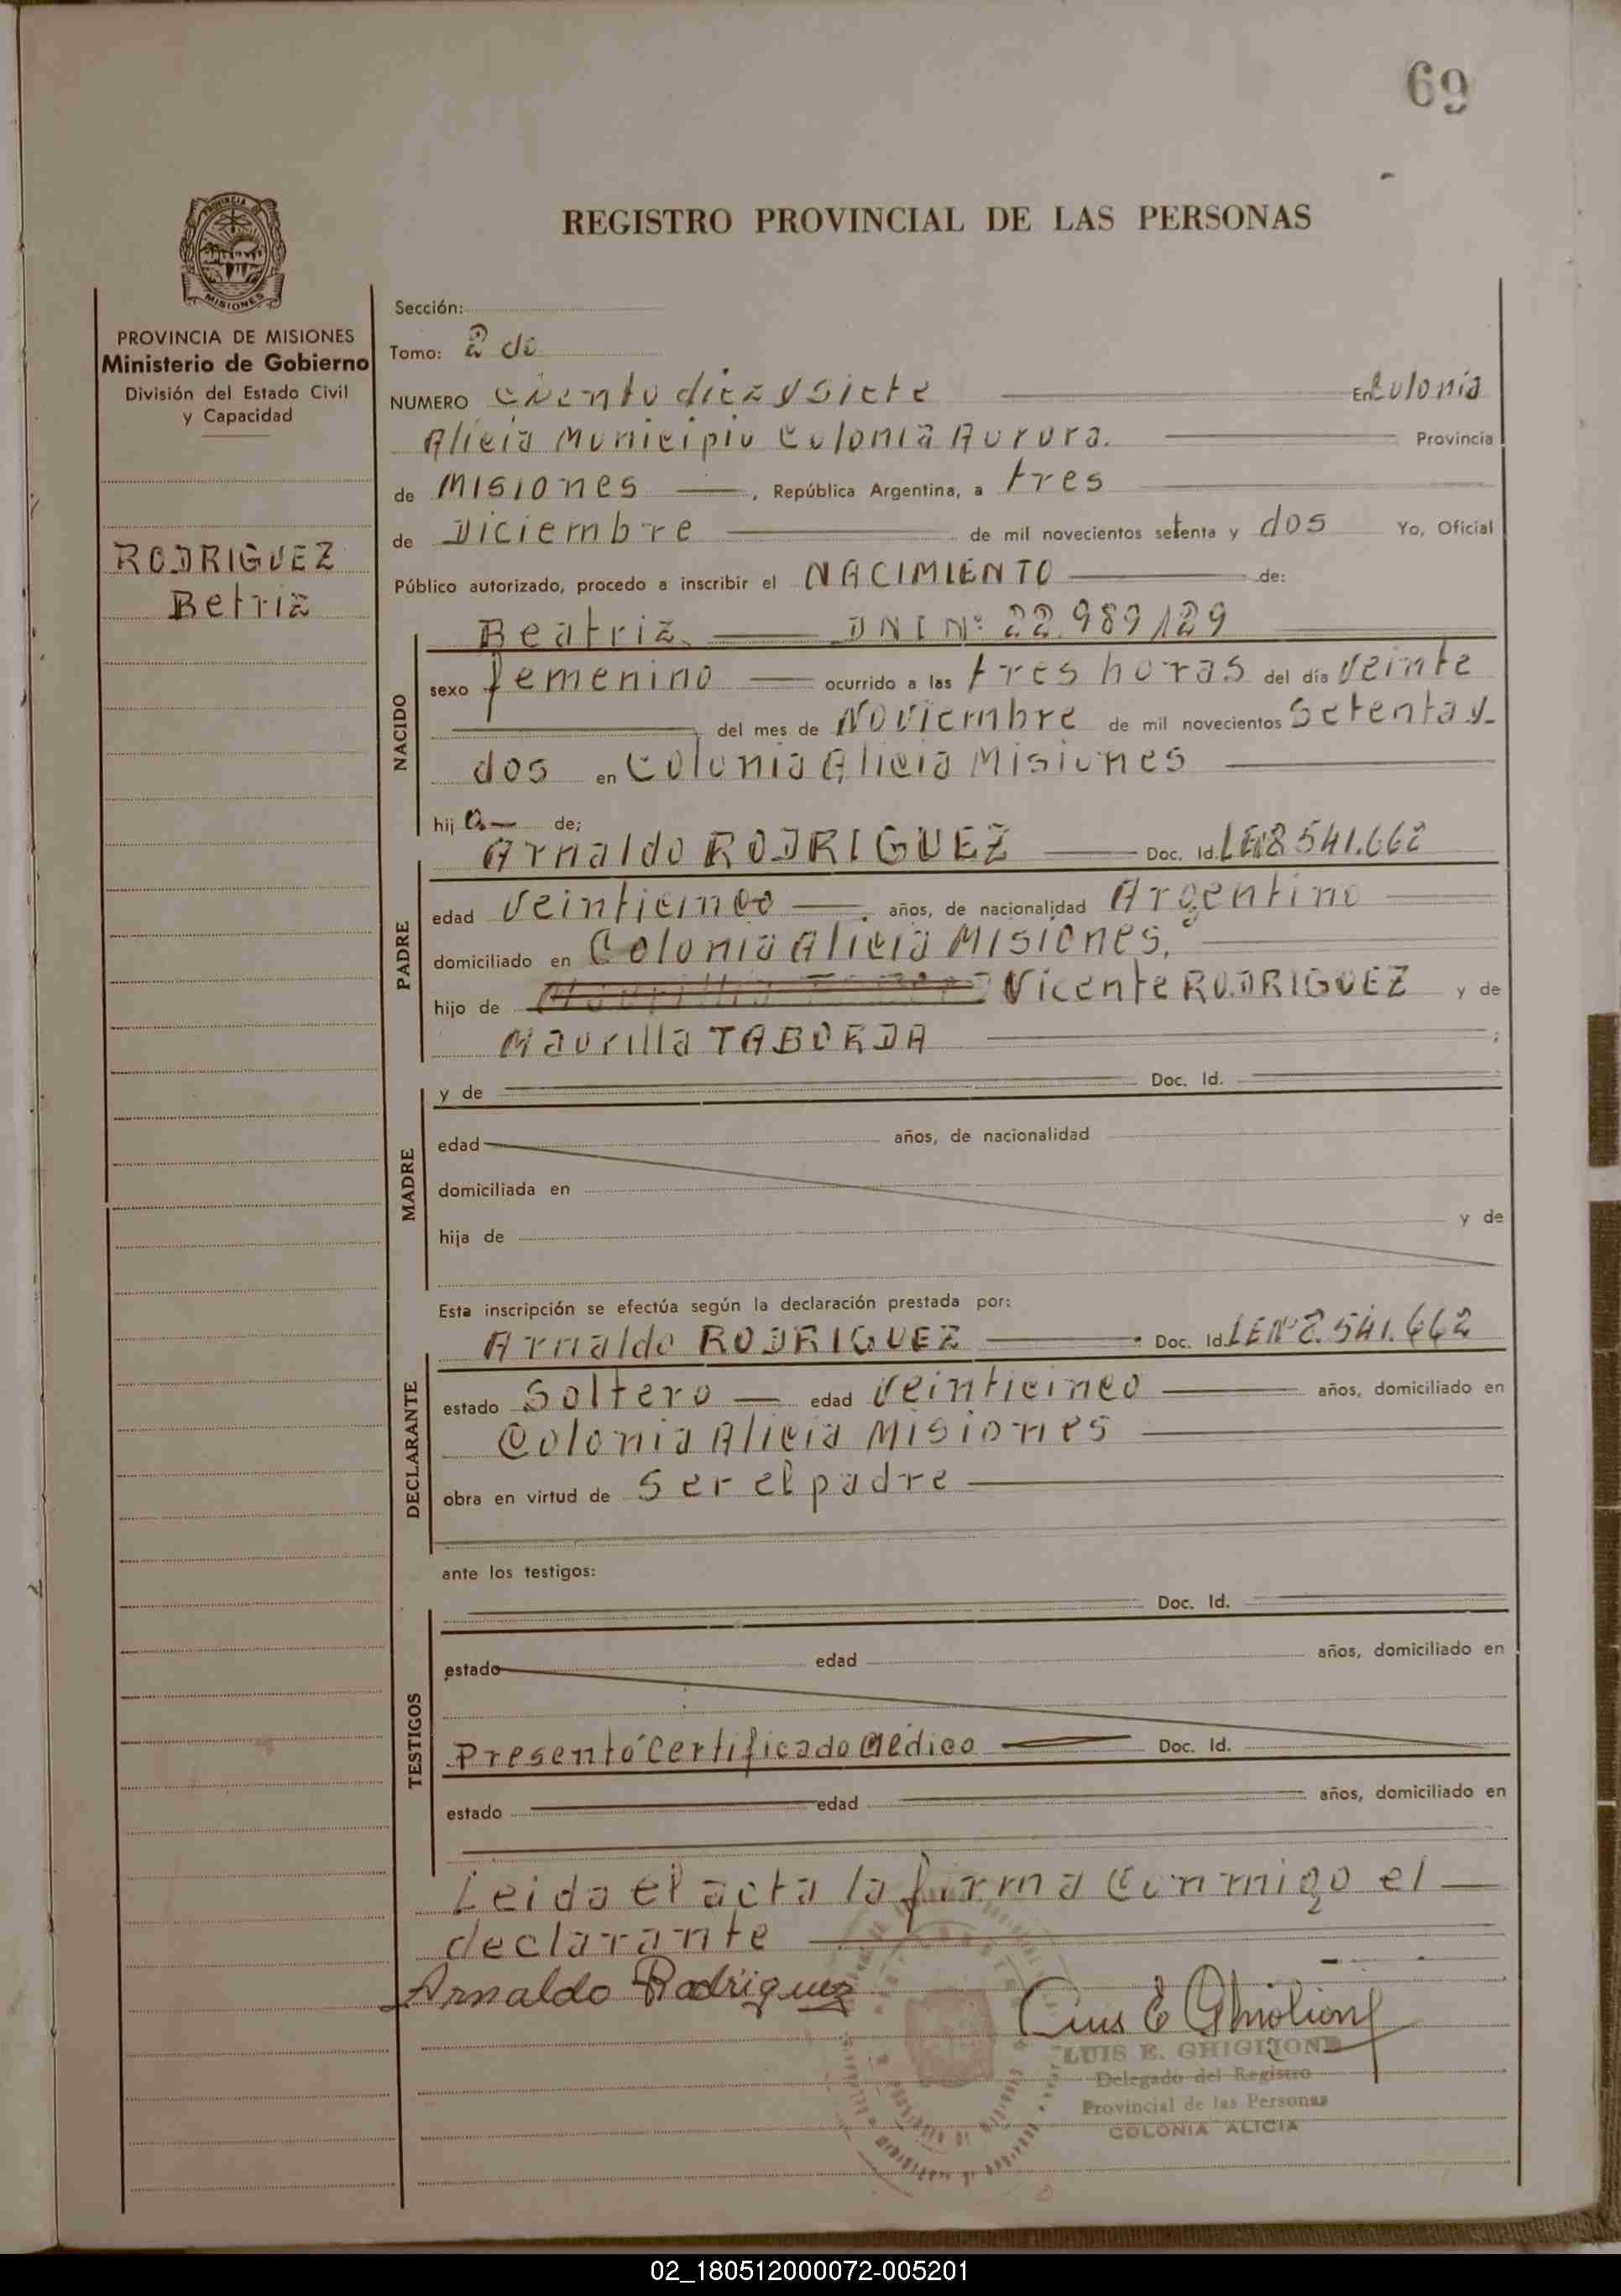 69
REGISTRO PROVINCIAL DE LAS PERSONAS
PROVINCIA DE MISIONES
Ministerio de Gobierno
División del Estado Civil
y Capacidad
RODRIGUEZ
Betriz
Sección:
Tomo: 2 do
NUMERO Ciento diez y siete En Colonia
Alicia Municipio Colonia Aurora. Provincia
de Misiones, República Argentina, a tres
de Diciembre de mil novecientos setenta y dos Yo, Oficial
Público autorizado, procedo a inscribir el NACIMIENTO de:
NACIDO
Beatriz DNI Nº 22.989129
sexo femenino ocurrido a las tres horas del día veinte
del mes de Noviembre de mil novecientos Setenta y
dos en Colonia Alicia Misiones
hij a de;
PADRE
Arnaldo RODRIGUEZ Doc. Id. LENº8.541.662
edad veinticinco años, de nacionalidad Argentino
domiciliado en Colonia Alicia Misiones,
hijo de Vicente RODRIGUEZ y de
Maurilla TABORDA ;
MADRE
y de Doc. Id.
edad años, de nacionalidad
domiciliada en
hija de y de
Esta inscripción se efectúa según la declaración prestada por:
DECLARANTE
Arnaldo RODRIGUEZ Doc. Id. LENº8.541.662
estado Soltero edad veinticinco años, domiciliado en
Colonia Alicia Misiones
obra en virtud de Ser el padre
ante los testigos:
TESTIGOS
Doc. Id.
estado edad años, domiciliado en
Presentó Certificado Médico Doc. Id.
estado edad años, domiciliado en
Leida el acta la firma Conmigo el
declarante
Arnaldo Rodriguez
Luis E Ghiglione
LUIS E. GHIGLIONE
Delegado del Registro
Provincial de las Personas
COLONIA ALICIA
02_180512000072-005201